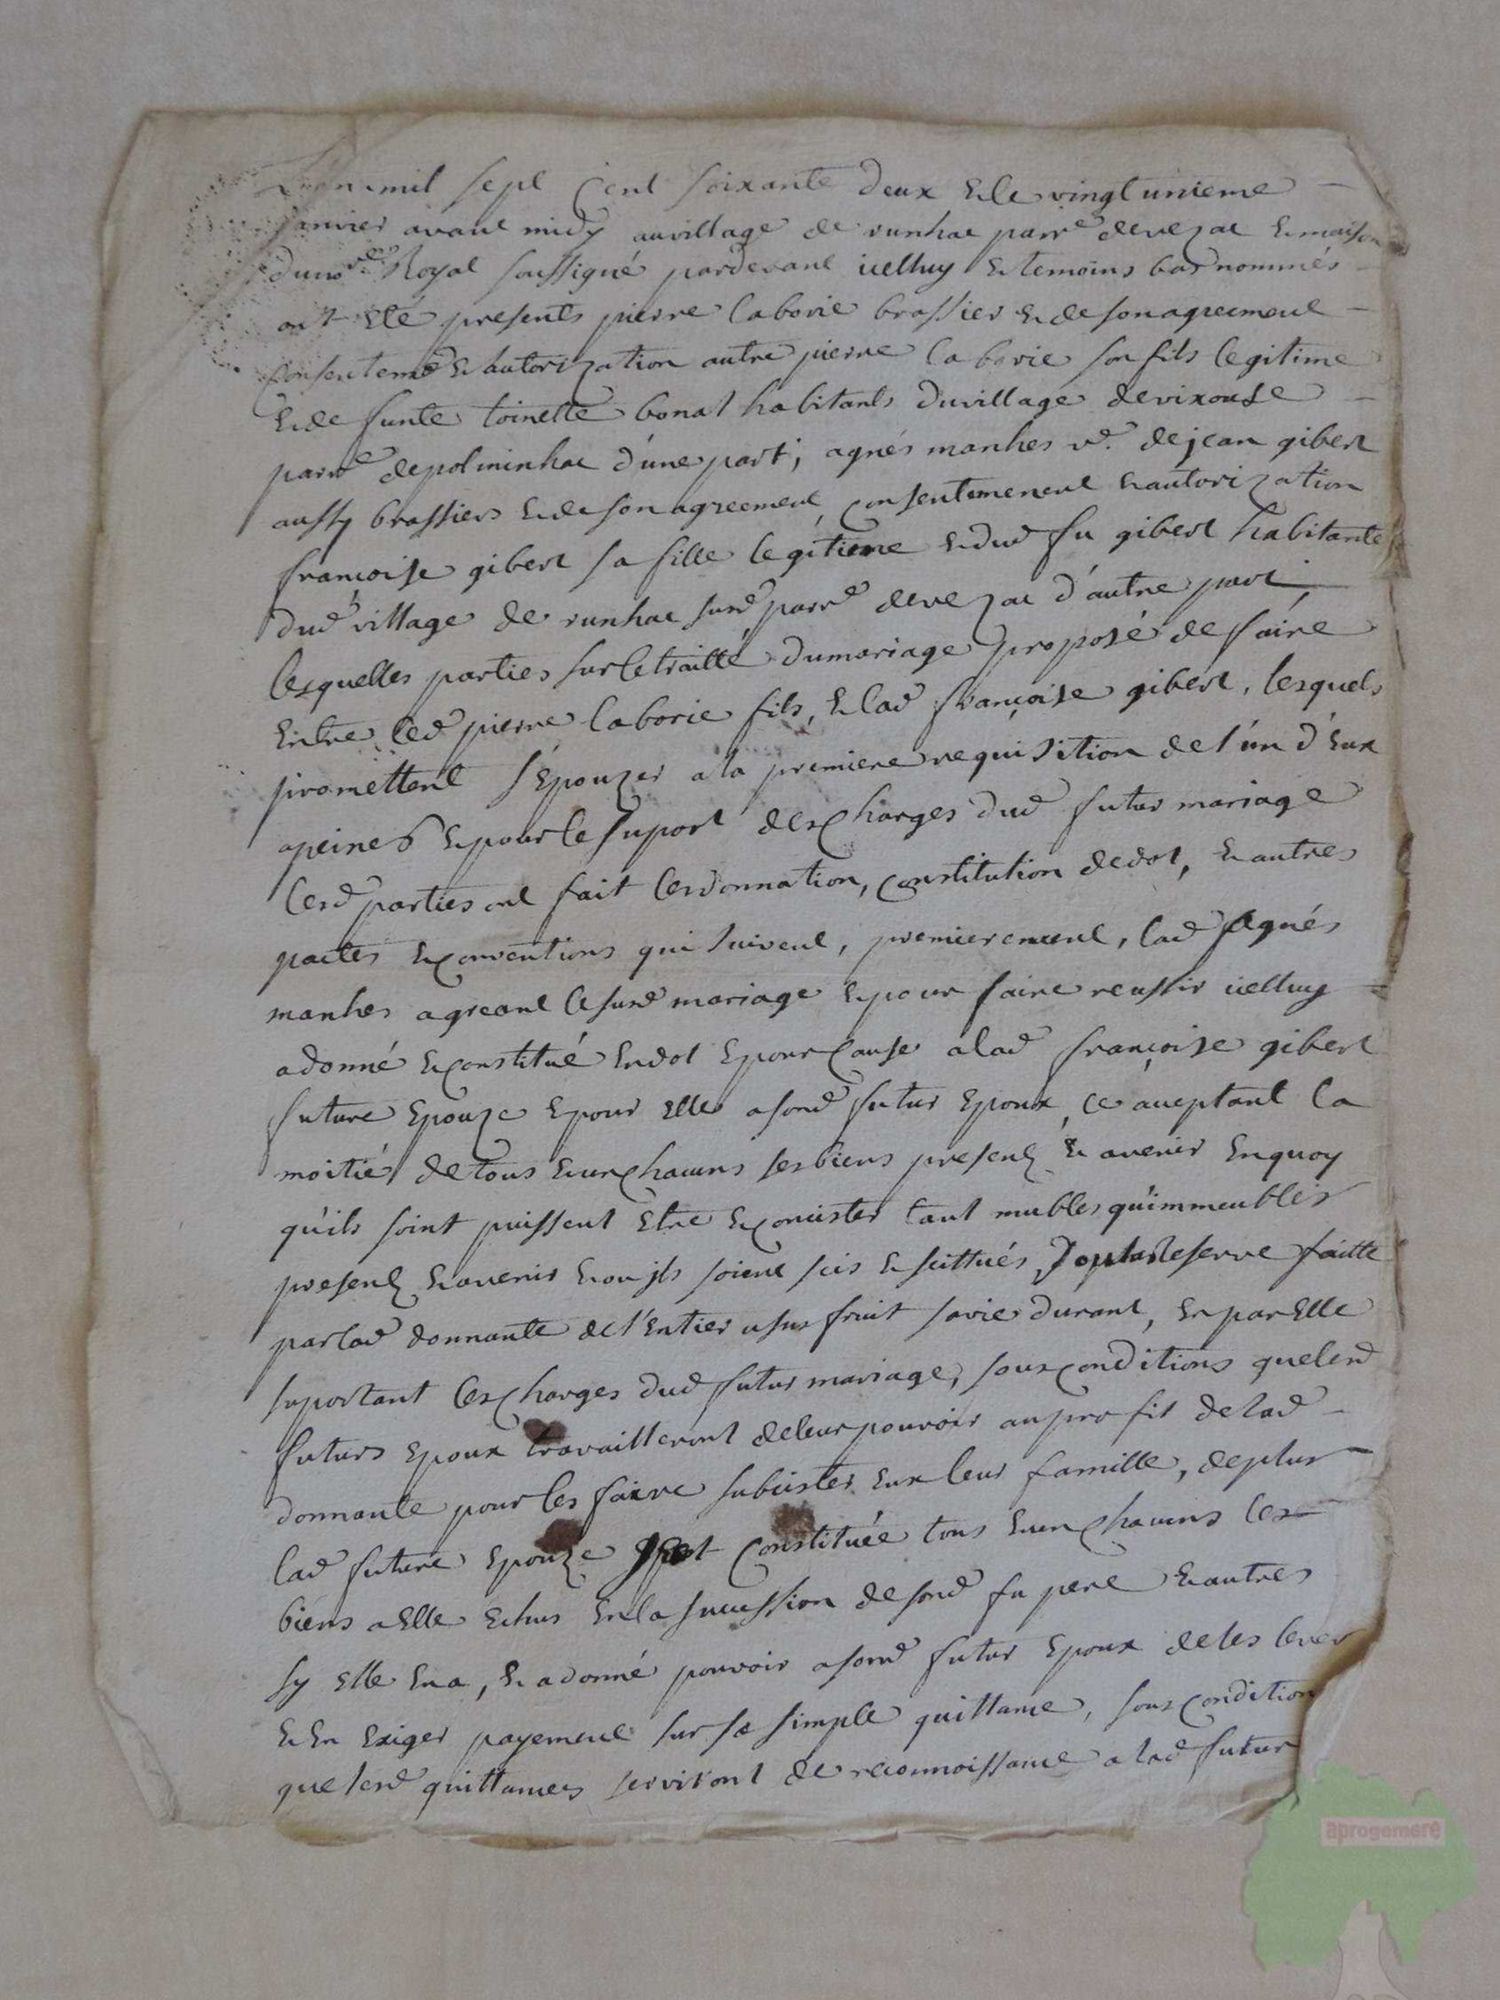 L'an mil sept cent soixante deux & le vingt unieme
janvier avant midy au village de runhac parr<sup>e</sup> de vezac & maison
du no<sup>re</sup> Royal soussigné pardevant icelluy & temoins bas nommés
ont eté presents pierre laborie brassier & de son agreement
consentem<sup>t</sup> & autorization autre pierre laborie son fils legitime
& de funte toinette bonal habitants du village de vixouse
parr<sup>e</sup> de polminhac d'une part, agnés manhes v<sup>e</sup>. de jean gibert
aussy brassier & de son agreement, consentement & autorization
françoise gibert sa fille legitime & dud fu gibert habitantes
dud village de runhac susd parr<sup>e</sup> de vezac d'autre part,
lesquelles parties sur le traitté du mariage proposé de faire
Entre led pierre laborie fils, & lad françoise gibert, lesquels
promettent s'epouzer a la premiere requisition de l'un d'Eux
a peine & & pour le suport des charges dud futur mariage
lesd parties ont fait les donnation, constitution de dot, & autres
pactes & conventions qui suivent, premierement, lad Agnés
manhes agreant le susd mariage & pour faire reussir icelluy
a donné & constitué En dot & pour cause a lad françoise gibert
future Epouze & pour Elle a sond futur Epoux, ce aceptant la
moitié de tous & uns chacuns ses biens presents & avenir En quoy
qu'ils soint puissent Etre & concister tant mubles qu'immeubles
presents & avenir & ou jls soient scis & scittués, reserve faitte
par lad donnante de l'Entier usufruit sa vie durant, En par Elle
suportant les charges dud futur mariage, sous conditions que lesd
futurs Epoux travailleront de leur pouvoir au profit de lad
donnante pour les faire subcister Eux leur famille, de plus
lad future Epouze s'est constituée tous & uns chacuns les
biens a Elle Echus En la sucession de sond fu pere & autres
sy Elle En a, & a donné pouvoir a sond futur Epoux de les lever
& En Exiger payement sur sa simple quittance, sous condition
que lesd quittances serviront de reconnoissance a lad futur
aprogemere